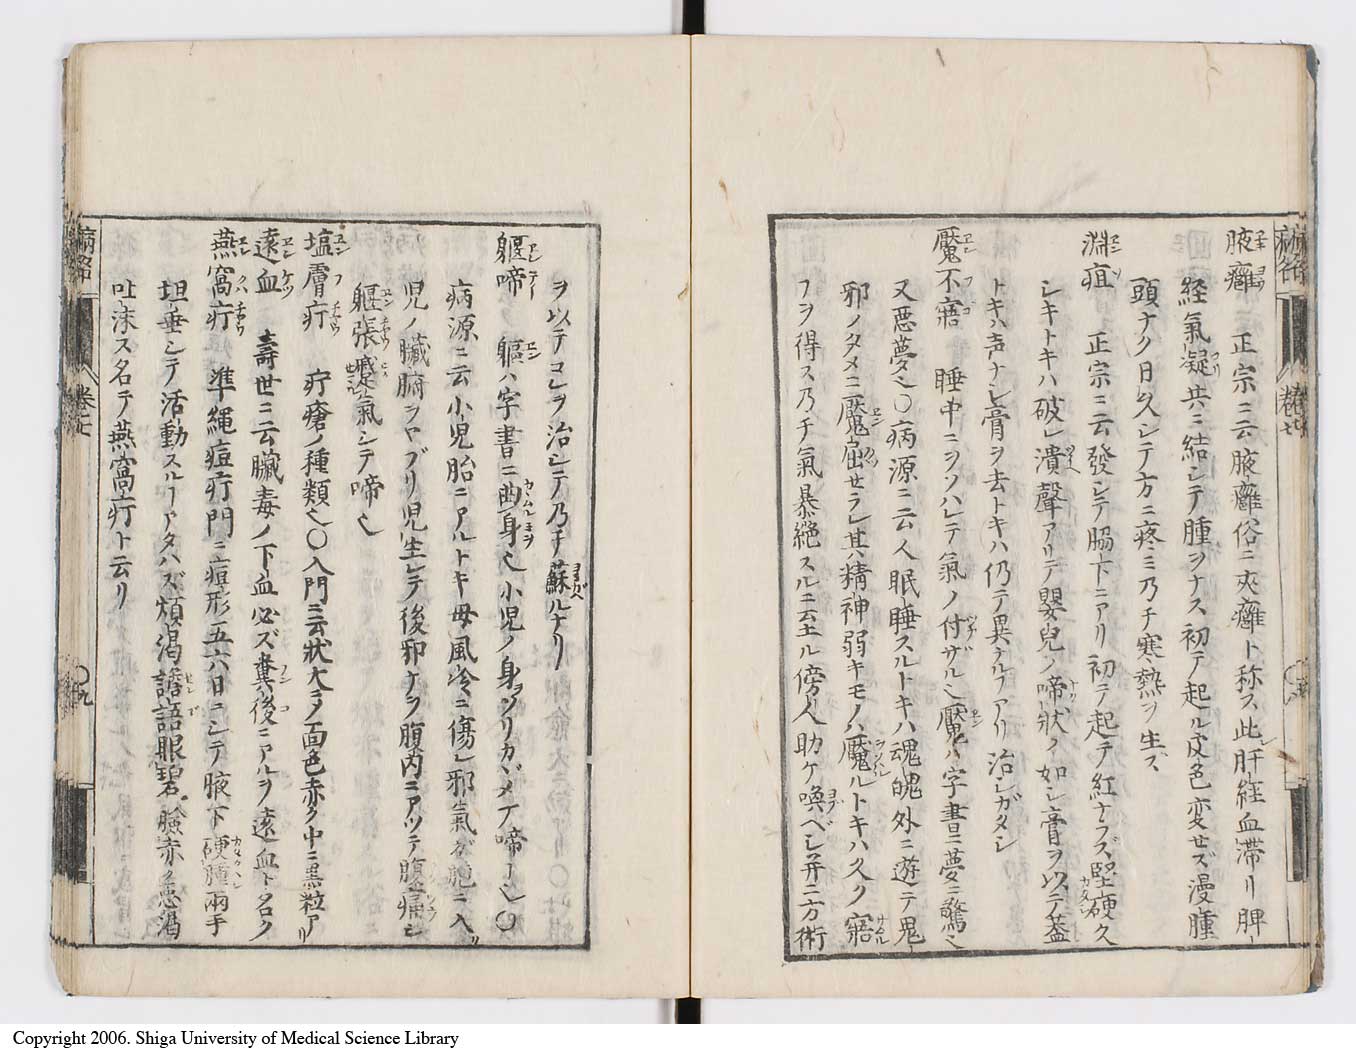 腋癰　正宗ニ云腋癰俗ニ夾癰ト称ス此肝経血滞リ脾
経氣凝共ニ結シテ腫ヲナス初テ起ル皮色変セズ漫腫
頭ナク日久シテ方ニ疼ミ乃チ寒熱ヲ生ズ
淵疽　正宗ニ云發シテ脇下ニアリ初テ起テ紅ナラズ堅硬久
シキトキハ破レ潰聲アリテ嬰兒ノ啼状ノ如シ膏ヲ以テ蓋
トキハ声ナシ膏ヲ去トキハ仍テ異ナルヿアリ治シガタシ
魘不寤　睡中ニヲソハレテ氣ノ付ザル也魘ハ字書ニ夢ニ驚也
又悪夢也〇病源ニ云人眠睡スルトキハ魂魄外ニ遊テ鬼
邪ノタメニ魘屈セラレ其精神弱キモノハ魘ルトキハ久ク寤
ヿヲ得ス乃チ氣暴絶スルニ至ル傍人助ケ喚ベシ并ニ方術
病名　巻七
ヲ以テコレヲ治シテ乃チ蘇ルナリ
軀啼　軀ハ字書ニ曲身也小児ノ身ヲソリカヾメテ啼ヿ也〇
病源ニ云小児胎ニアルトキ母風冷ニ傷レ邪氣ガ胞ニ入リ
児ノ臓腑ヲヤブリ児生レテ後邪ナヲ腹内ニアツテ腹痛シ
軀張蹙氣シテ啼也
塩膚疔　疔瘡ノ種類也〇入門ニ云状大ヲノ面色赤ク中ニ黒粒アリ
遠血　壽世ニ云臓毒ノ下血必ズ糞後ニアルヲ遠血ト名ク
燕窩疔　準縄痘疔門ニ痘形五六日ニシテ腋下硬腫兩手
坦垂シテ活動スルヿアタハズ煩渇譫語眼碧ク臉赤ク悪渇
吐沫ス名テ燕窩疔ト云リ
病名　巻七　〇九
Copyright 2006. Shiga University of Medical Science Library